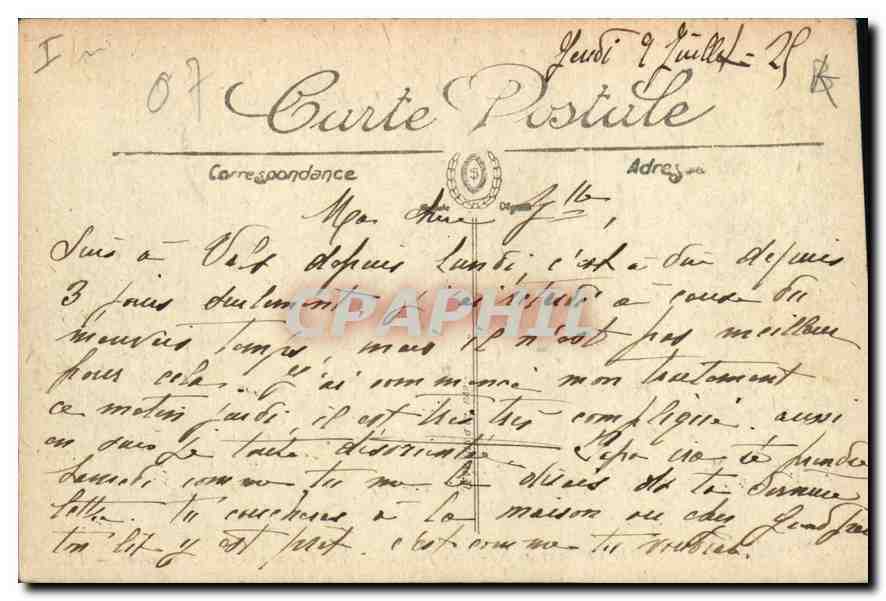 Jeudi 9 Juillet - 25
07
Carte Postale
Correspondance
Adresse
Ma chère
Suis à Vals depuis lundi, c'est à dire depuis
3 jours seulement, j'ai retardé à cause du
mauvais temps, mais il n'est pas meilleur
pour cela. J'ai commencé mon traitement
ce matin jeudi, il est très très compliqué. aussi
en suis je toute désorientée. Papa ira te prendre
Samedi comme tu me le disais ds ta dernière
lettre. Tu coucheras à la maison ou chez
ton lit y est prêt. c'est comme tu voudras.
CPAPHIL